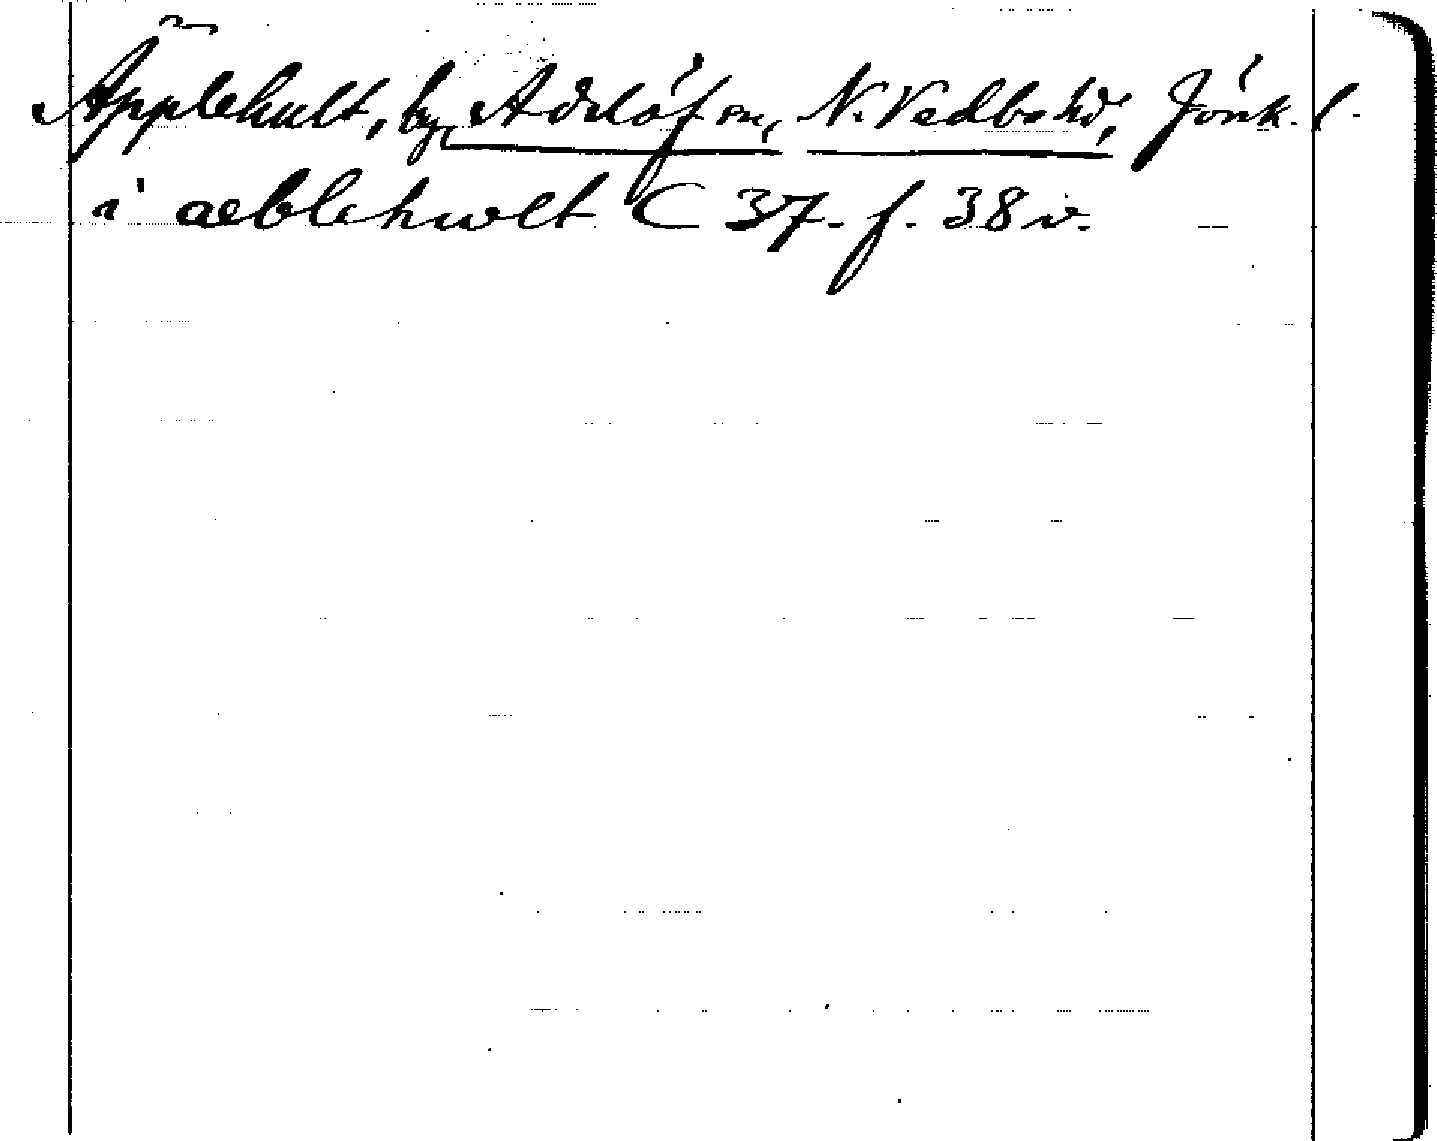 Äpplehult, by, Adelöfsn, N. Vedbo hd, Jönk. l.
i aeblehwlt C 37. f. 38 v.